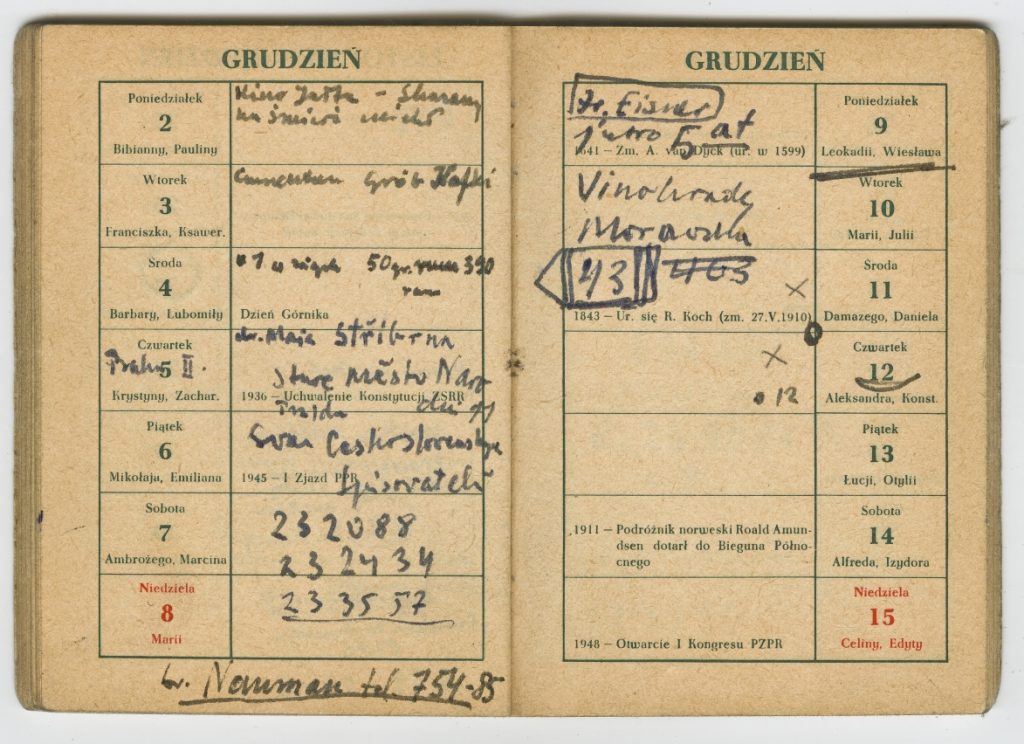 GRUDZIEŃ
Poniedziałek
2
Bibianny, Pauliny
Kino
Wtorek
3
Franciszka, Ksawer.
Grób Kafki
Środa
4
Barbary, Lubomiły
50 gr.
Dzień Górnika
Czwartek
5
Praha II.
Krystyny, Zachar.
dr. Maja Stříbrna
Staré Město Naro
1936 – Uchwalenie Konstytucji ZSRR
Piątek
6
Mikołaja, Emiliana
Svaz Ceskoslovenskych
1945 – I Zjazd PPR
spisovatelů
Sobota
7
Ambrożego, Marcina
232088
232434
Niedziela
8
Marii
233557
Nauman tel. 754-85
GRUDZIEŃ
Dr. Eisner
Poniedziałek
9
Leokadii, Wiesława
jutro 5
1641 – Zm. A. van Dyck (ur. w 1599)
Wtorek
10
Marii, Julii
Vinohrady
Moravska
Środa
11
Damazego, Daniela
43
1843 – Ur. się R. Koch (zm. 27.V.1910)
Czwartek
12
Aleksandra, Konst.
12
Piątek
13
Łucji, Otylii
Sobota
14
Alfreda, Izydora
1911 – Podróżnik norweski Roald Amun-
dsen dotarł do Bieguna Półno-
cnego
Niedziela
15
Celiny, Edyty
1948 – Otwarcie I Kongresu PZPR